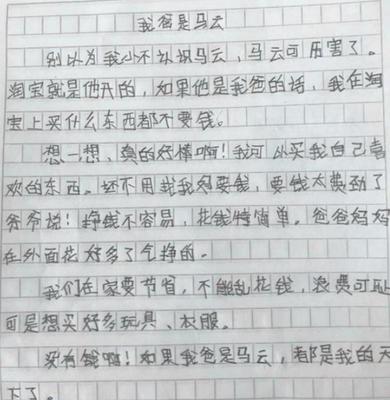 我爸是马云
别以为我小不认识马云，马云可历害了。
淘宝就是他开的，如果他是我爸的话，我在淘
宝上买什么东西都不要钱。
想一想，真的好棒啊！我可以买我自己喜
欢的东西。还不用找我爸要钱，要钱太费劲了
爷爷说！挣钱不容易，花钱特简单。爸爸妈妈
在外面花好多了气挣的。
我们在家要节省，不能乱花钱，浪费可耻
可是想买好多玩具、衣服。
没有钱啊！如果我爸是马云，都是我的天
下了。